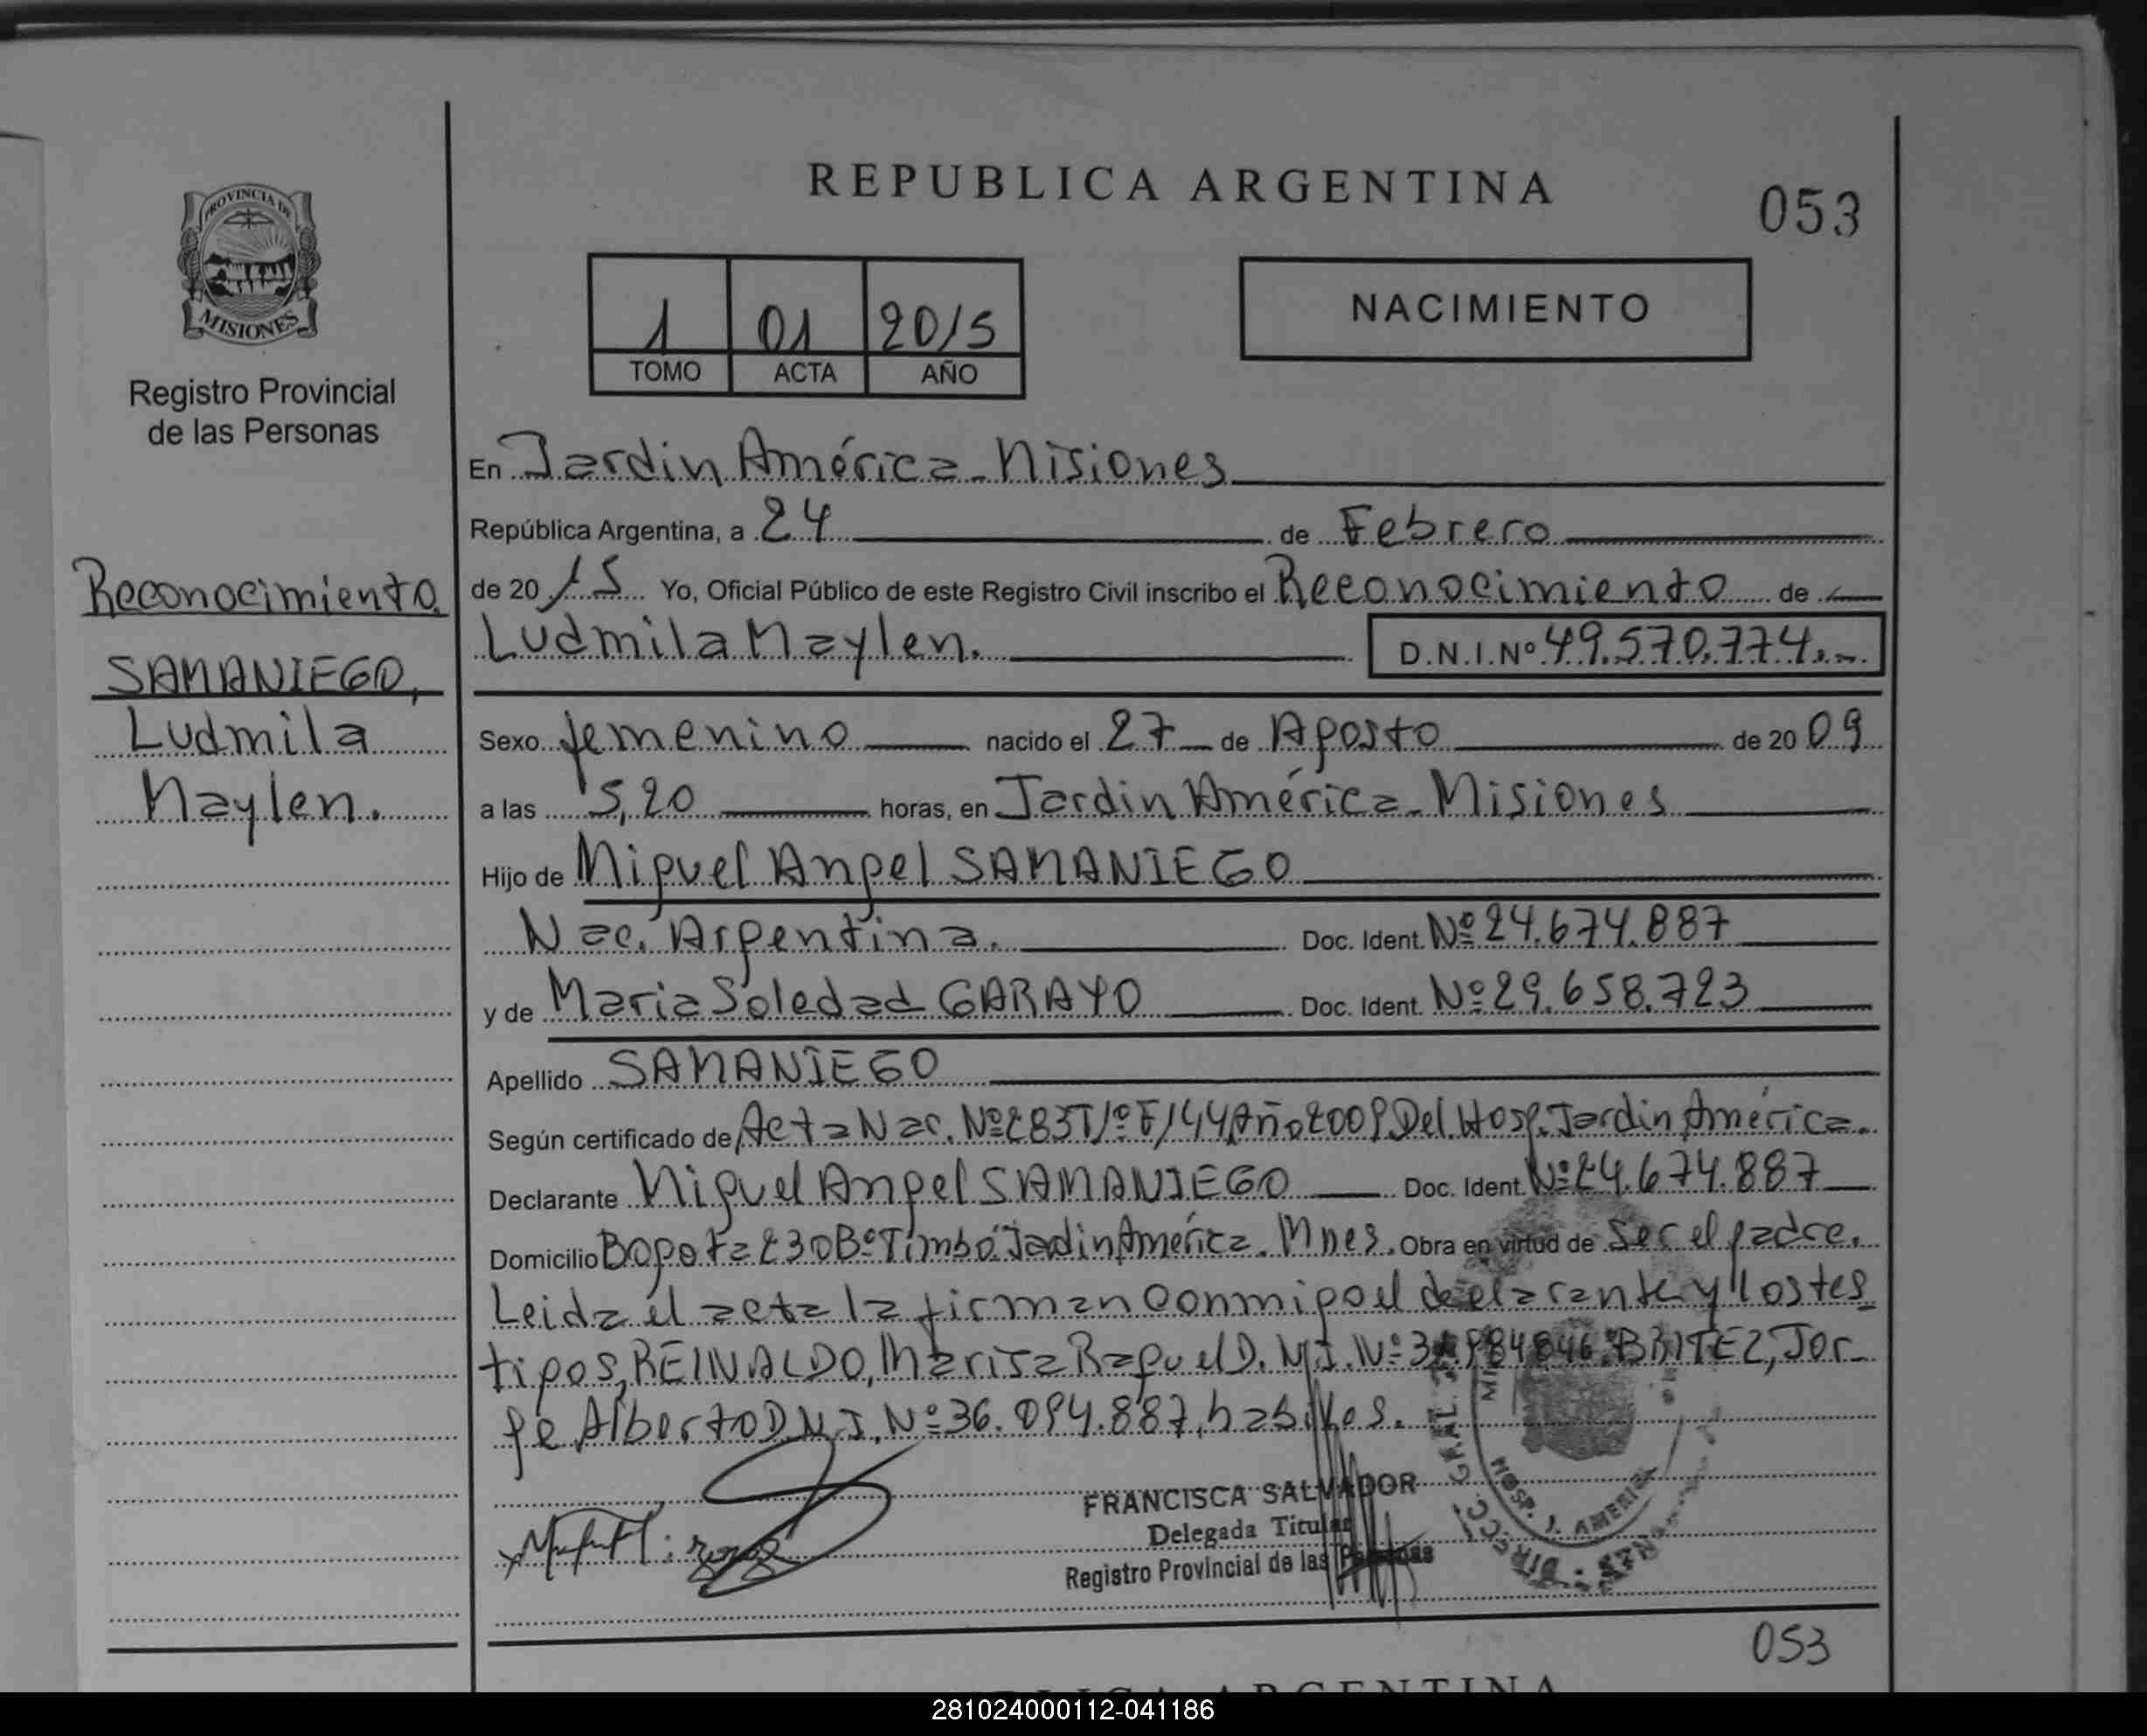 REPUBLICA ARGENTINA
053
PROVINCIA DE
MISIONES
Registro Provincial
de las Personas
1 01 2015
TOMO ACTA AÑO
NACIMIENTO
Reconocimiento
SAMANIEGO,
Ludmila
Maylen.
En Jardin América - Misiones
República Argentina, a 24 de Febrero
de 20 15 Yo, Oficial Público de este Registro Civil inscribo el Reconocimiento de
Ludmila Maylen. D.N.I.Nº 49.570.774.-
Sexo femenino nacido el 27 de Agosto de 20 09
a las 5,20 horas, en Jardin América - Misiones
Hijo de Miguel Angel SAMANIEGO
Nac. Argentina. Doc. Ident. Nº 24.674.887
y de Maria Soledad GARAYO Doc. Ident. Nº 29.658.723
Apellido SAMANIEGO
Según certificado de Acta Nac. Nº 283 T1º F144 Año 2009 Del Hosp. Jardin América.
Declarante Miguel Angel SAMANIEGO Doc. Ident. Nº 24.674.887
Domicilio Bogota 230 Bº Timbó Jardin América. Mnes. Obra en virtud de Ser el padre.
Leida el acta la firman conmigo el declarante y los tes
tigos, REINALDO, Marisa Raquel D.N.I. Nº BRITEZ, Jor-
ge Alberto D.N.I. Nº 36.094.887, habiles.
FRANCISCA SALVADOR
Delegada Titular
Registro Provincial de las Personas
HOSP. J. AMERICA
053
281024000112-041186